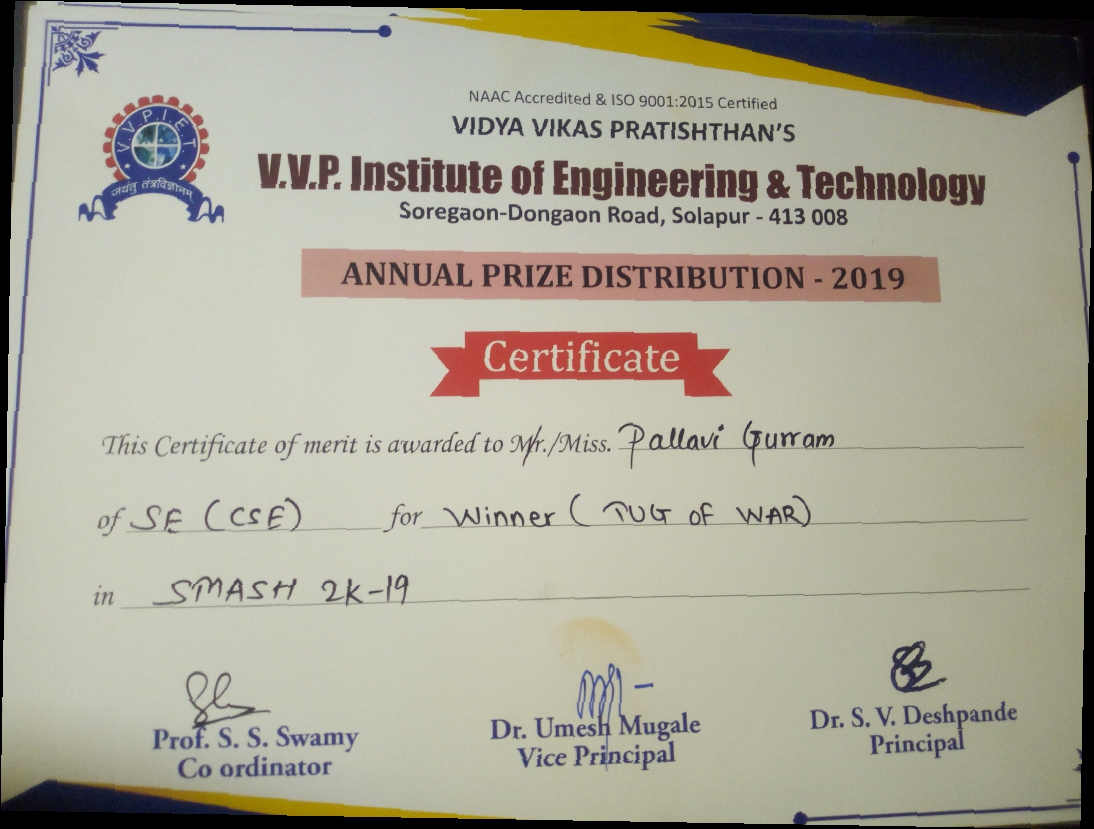 NAAC Accredited & ISO 9001:2015 Certified
VIDYA VIKAS PRATISHTHAN'S
V.V.P. Institute of Engineering & Technology
Soregaon-Dongaon Road, Solapur - 413 008
V.V.P.I.E.T.
जयतु तंत्रविज्ञानम्
ANNUAL PRIZE DISTRIBUTION - 2019
Certificate
This Certificate of merit is awarded to Mr./Miss. Pallavi Gurram
of SE (CSE) for Winner ( TUG OF WAR)
in SMASH 2K-19
Prof. S. S. Swamy
Co ordinator
Dr. Umesh Mugale
Vice Principal
Dr. S. V. Deshpande
Principal